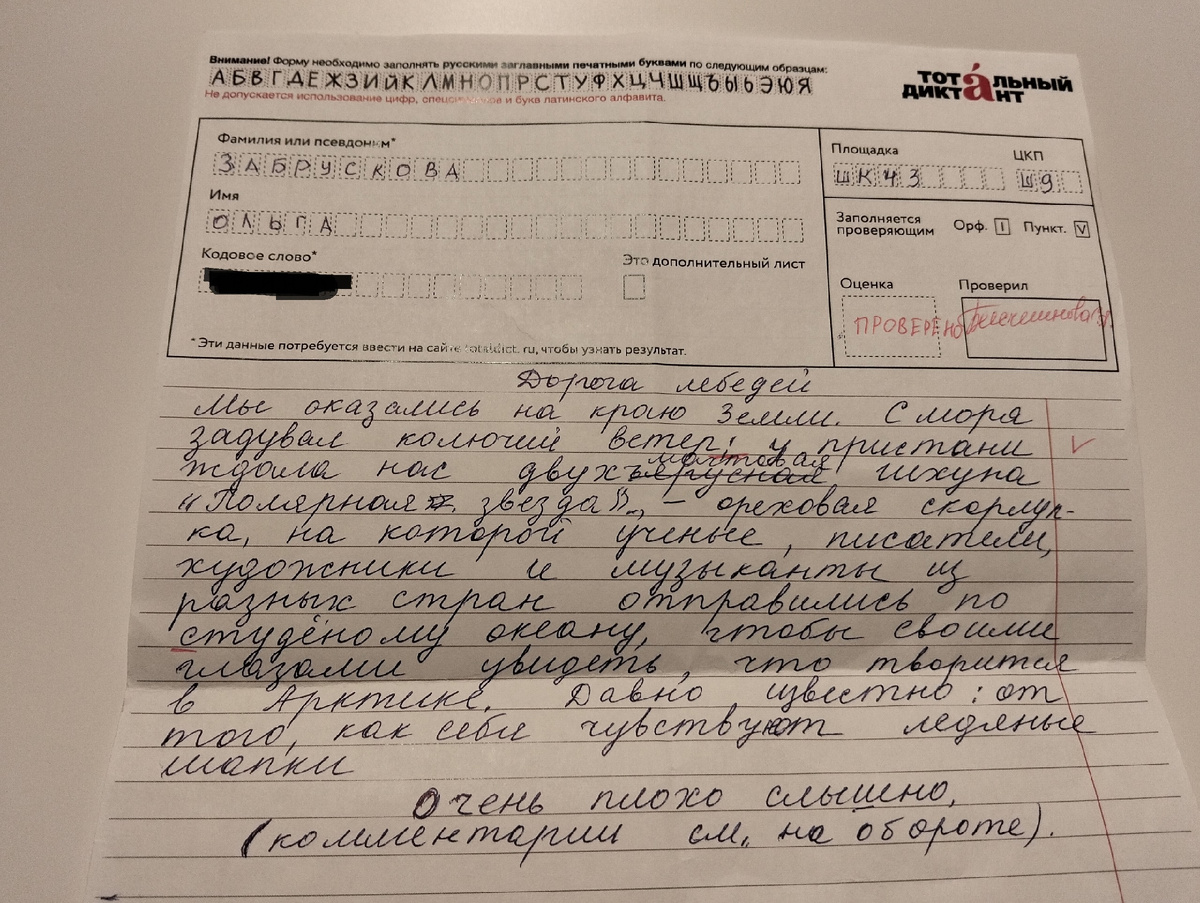 Внимание! Форму необходимо заполнять русскими заглавными печатными буквами по следующим образцам:
АБВГДЕЖЗИЙКЛМНОПРСТУФХЦЧШЩЪЫЬЭЮЯ
Не допускается использование цифр, спецсимволов и букв латинского алфавита.
тотальный
диктант
Фамилия или псевдоним*
ЗАБРУСКОВА
Имя
ОЛЬГА
Кодовое слово*
Это дополнительный лист
*Эти данные потребуется ввести на сайте totaldict.ru, чтобы узнать результат.
Площадка
ШК43
ЦКП
Ш9
Заполняется
проверяющим
Орф. I
Пункт. V
Оценка
Проверил
ПРОВЕРЕНО
Дорога лебедей
Мы оказались на краю Земли. С моря
задувал колючий ветер; у пристани
ждала нас двухмачтовая шхуна
"Полярная звезда", – ореховая скорлуп-
ка, на которой ученые, писатели,
художники и музыканты из
разных стран отправились по
студёному океану, чтобы своими
глазами увидеть, что творится
в Арктике. Давно известно: от
того, как себя чувствуют ледяные
шапки
Очень плохо слышно,
(комментарии см. на обороте).